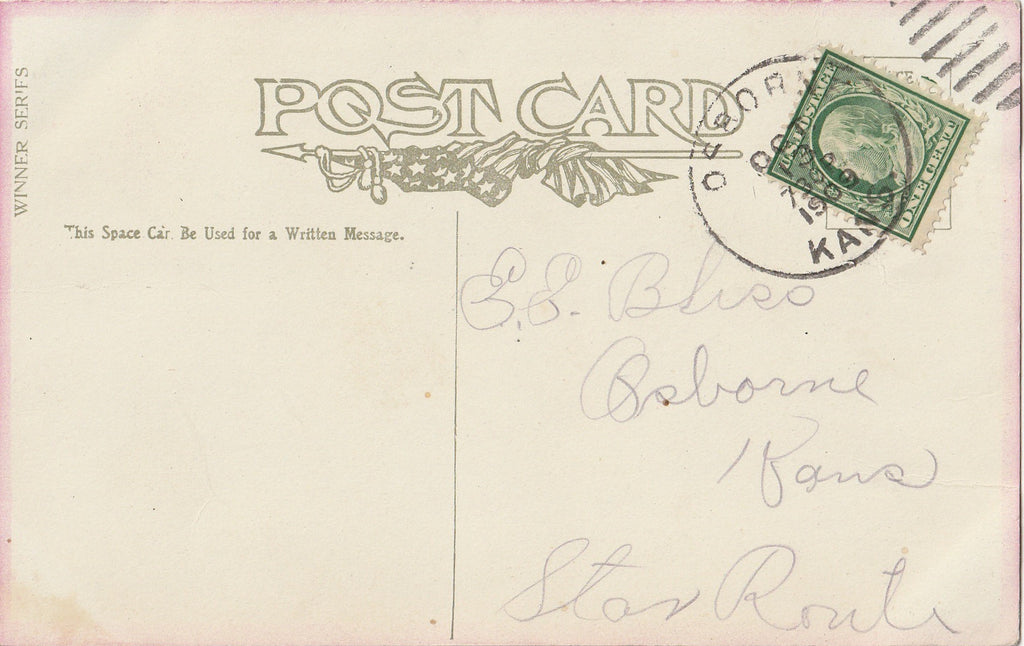 WINNER SERIES
POST CARD
This Space Can Be Used for a Written Message.
OSBORNE
OCT
KAN
U.S. POSTAGE
ONE CENT
E. E. Bliss
Osborne
Kans
Star Route